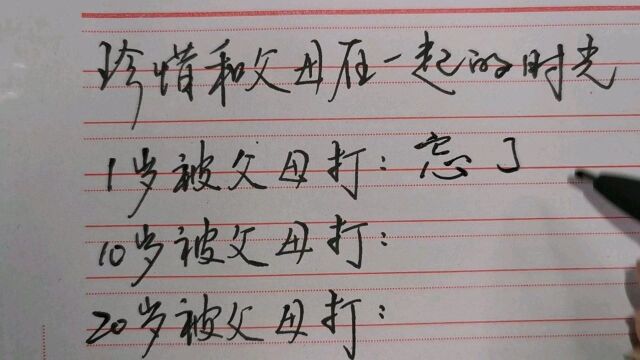 珍惜和父母在一起的时光
1岁被父母打：忘了
10岁被父母打：
20岁被父母打：